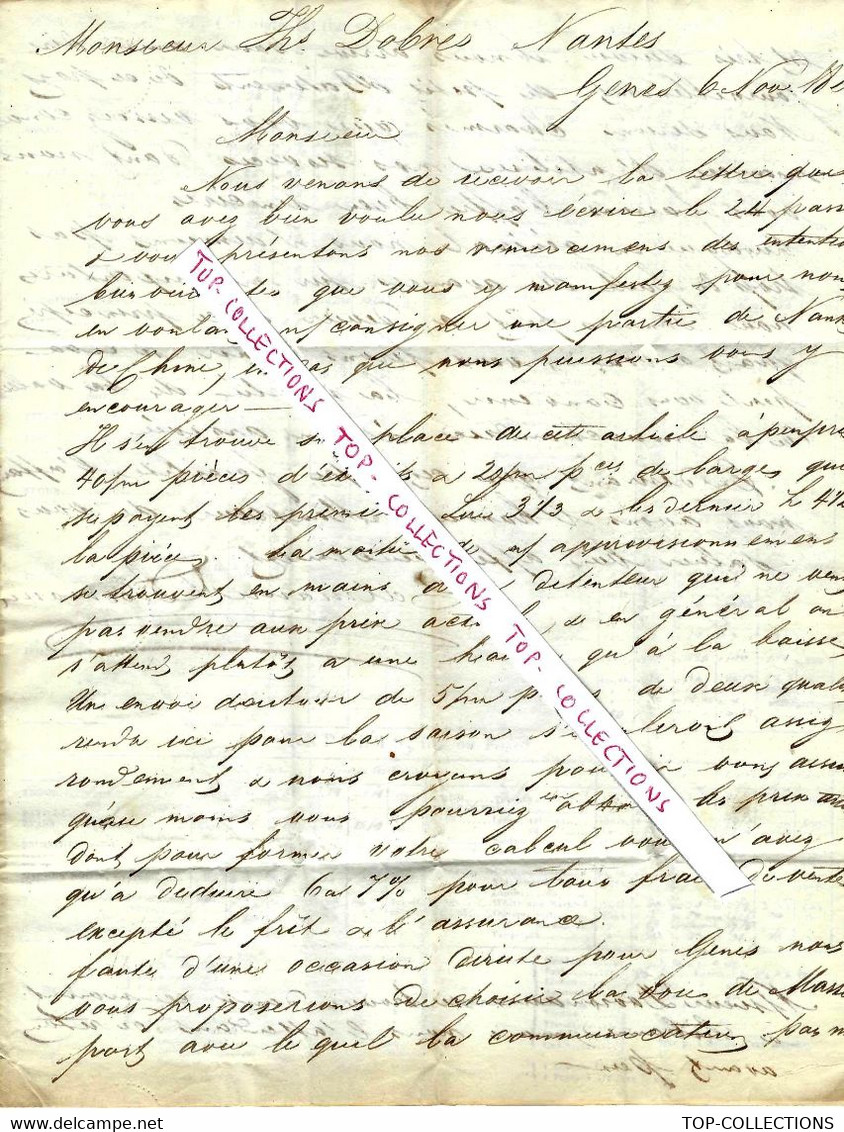 Monsieur Ths. Dobrée Nantes
Genes 6 Nov. 18
Monsieur
Nous venons de recevoir la lettre que
vous avez bien voulu nous écrire le 24 pass
& vous présentons nos remercimens des intentio
que vous y manifestez pour nous
en voulant n/ consigner une partie de Nank
de Chine, que nous puissions vous y
encourager —
Il s'en trouve sur place de cet article àpeuprès
40/m pièces & 20/m pces de larges que
se payent les premiers Lire 3 1/3 & les dernier L 4 1/2
la pièce. La moitié de n/ approvisionnemens
se trouvent en mains detenteur qui ne veu
pas vendre aux prix actuels, & en général on
s'attend plutôt a une hausse qu'à la baisse
Un envoi d'autour de 5/m p de deux qualit
rendu ici pour la saison s'écouleront assez
rondement & nous croyons pouvoir vous assur
qu'au moins vous pourriez les prix
dont pour former votre calcul vous n'avez
qu'a déduire 6 a 7% pour tous frais de vente
excepté le frêt & l'assurance.
faute d'une occasion directe pour Genes nous
vous proposerions de choisir la voie de Marse
port avec le quel la communication par m
TOP-COLLECTIONS TOP-COLLECTIONS TOP-COLLECTIONS
TOP-COLLECTIONS